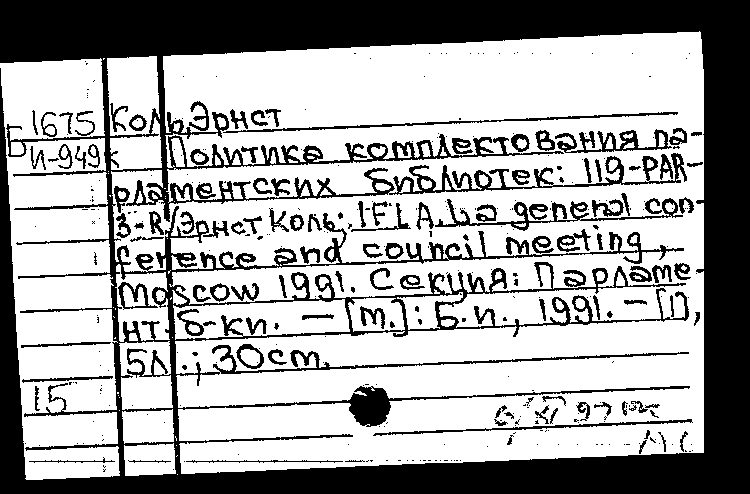 Б 1675 Коль, Эрнст
И-949к Политика комплектования па-
рламентских библиотек: 119-PAR-
3-R/Эрнст Коль; IFLA. La general con-
ference and council meeting,
Moscow 1991. Секция: Парламе-
нт. б-ки. — [m.]: Б.и., 1991. — [1],
5л.; 30cm.
15